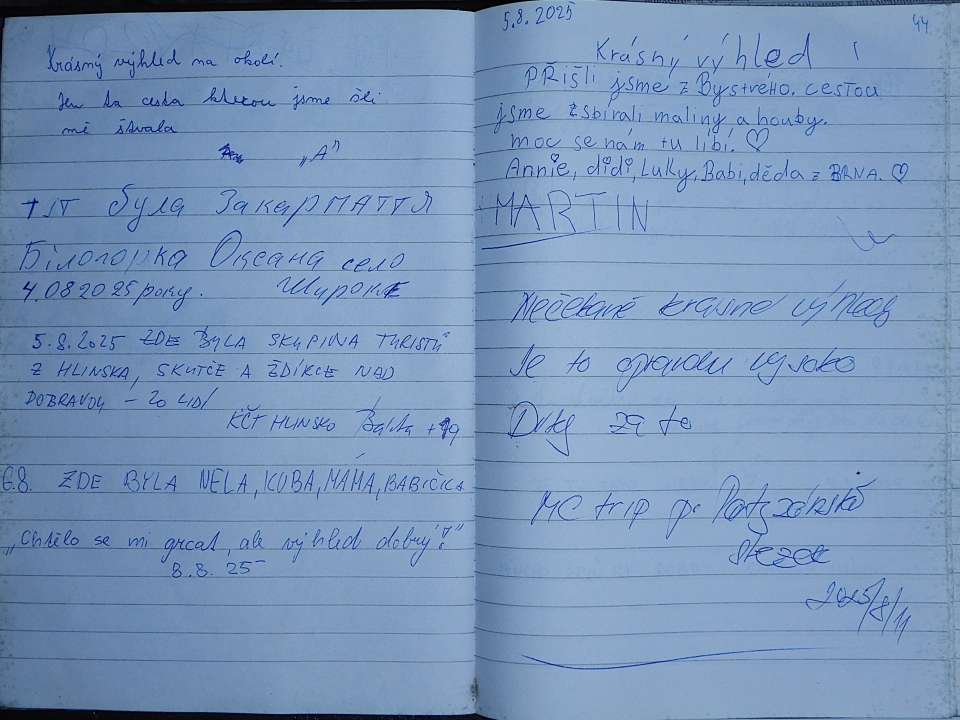 Krásný výhled na okolí.
Jen ta cesta kterou jsme šli
mě štvala
„A"
TУТ була Закарпаття
Білогорка Оксана село
4.08 2025 року. Широке
5.8.2025 ZDE BYLA SKUPINA TURISTŮ
Z HLINSKA, SKUTČE A ŽDÍRCE NAD
DOBRAVOU - 20 LIDÍ
KČT HLINSKO +19
6.8. ZDE BYLA NELA, KUBA, MÁMA, BABIČKA
„Chtělo se mi grcat, ale výhled dobrý!"
8.8. 25
5.8.2025
44
Krásný výhled !
PŘIŠLI jsme z Bystrého. cestou
jsme zsbírali maliny a houby.
moc se nám tu líbí. ♡
Annie, didi, Luky, Babi, děda z BRNA. ♡
MARTIN
Nečekaně krásné výhledy
Je to opravdu vysoko
Díky za to
MC trip po Partyzánské
stezce
2025/8/11